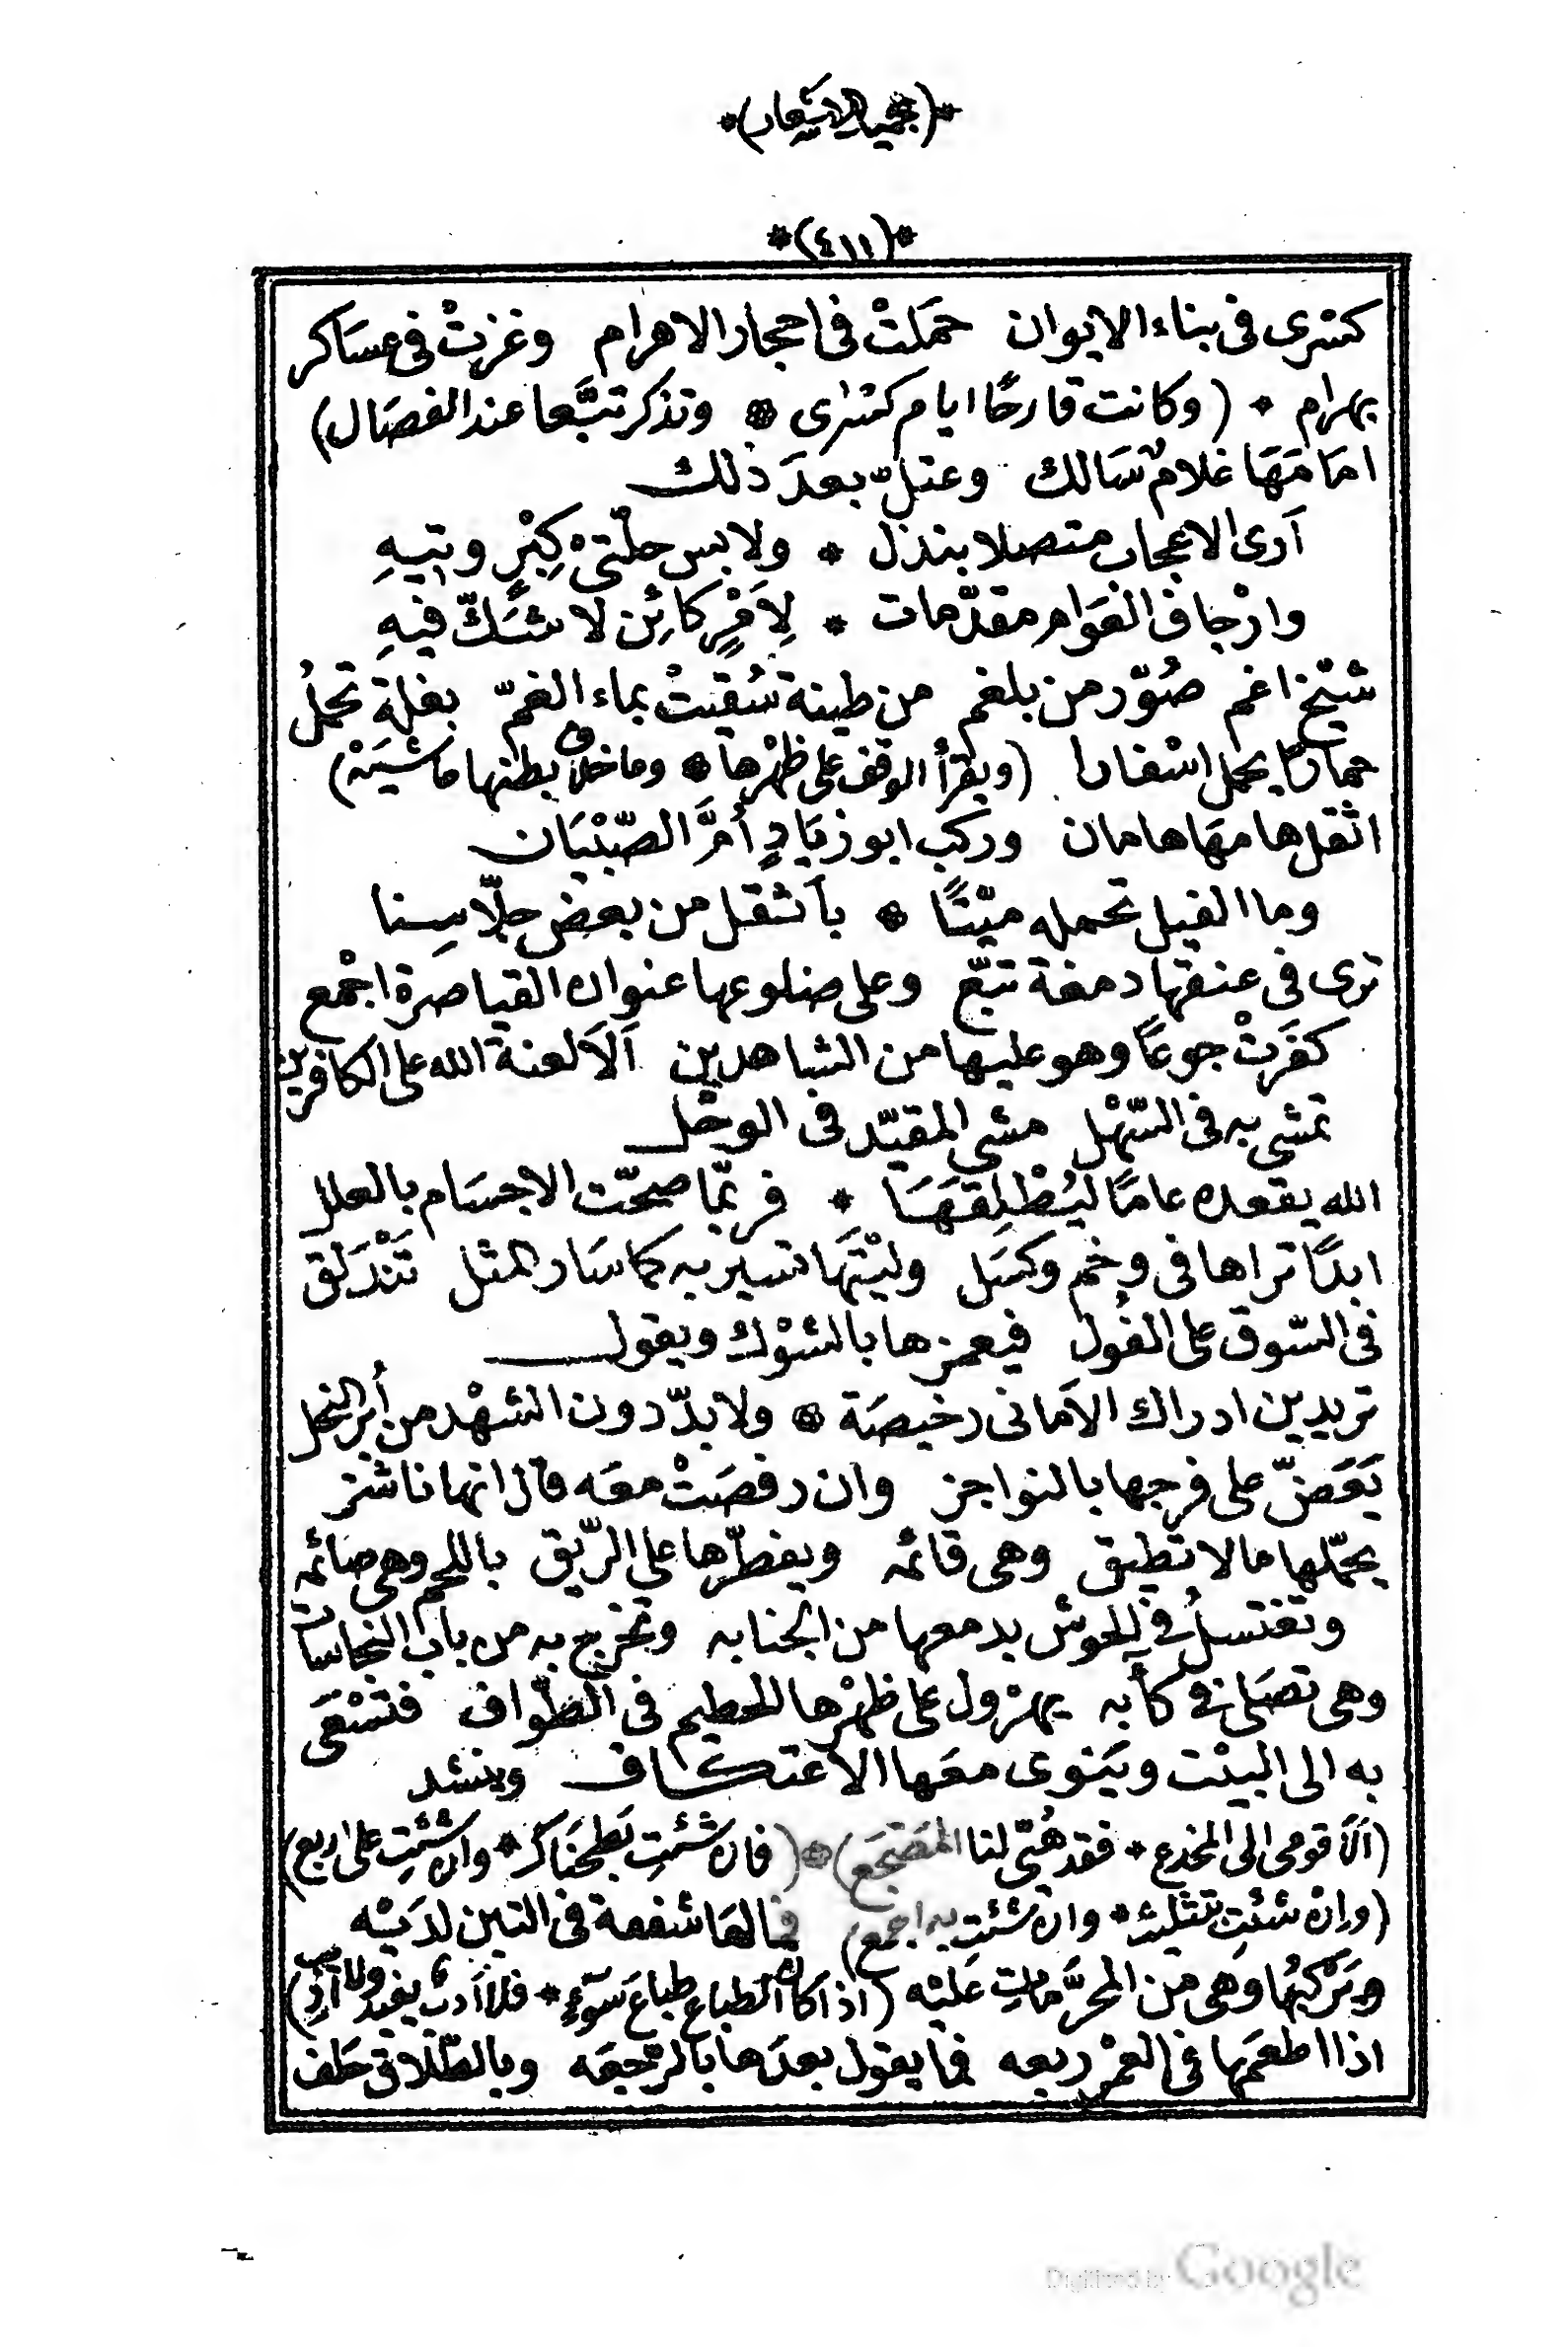 *(عجيب الاشعار)*
*(٤١١)*
كسْرى فى بناء الايوان حمَلتْ فى احجار الاهرام وغزتْ فى عسَاكر
بهرام * (وكانت قارحًا ايام كسْرٰى * وتذكر تبَّعا عند الفصَال)
امامَهَا غلامٌ سَالك وعتلّ بعدَ ذلك
اَرى الاعجاب متصلا بنذل * ولابس حلّتىْ كِبْرٍ وتيهِ
وارْجاف العَوام مقدّمات * لِاَمْرٍ كائِن لا شَكّ فيهِ
شيْخ اغم صُوّر من بلغم من طينة سُقيتْ بماء الغمّ بغلة تحملُ
حمارًا يحمل اسْفارا (ويقرأُ الوقف على ظهْرها * وما خلّا فى بطنها ماشيَهْ)
اثقلها مهَا هامان وركب ابو زيَادٍ أُمَّ الصّبْيَان
وما الفيل تحمله ميّتًا * باَثقل من بعض جلّاسِنا
ترى فى عنقها دمغة تبّع وعلى ضلوعها عنوان القياصرة اجْمع
كفَرتْ جوعًا وهو عليها من الشاهدين اَلَا لعنة الله على الكافرين
تمشى به فى السّهْل مشى المقيّد فى الوحْل
الله يقعده عامًا ليُطْلِقهَا * فربّما صحّت الاجسَام بالعلل
ابدًا تراها فى وخم وكسَل وليْتَهَا تسير به كما سَار المثل تَنْدَلق
فى السّوق على الفُول فيعمزها بالشوْك ويقول
تريدين ادراك الاَمانى رخيصَة * ولا بدّ دون الشهْد من أُبر النحل
يَعَضّ على فرجها بالنواجز وان رفصَتْ معَه قال انها ناشز
يحمّلها ما لا تطيق وهى قائمه ويفطّرها على الرّيق باللجم وهى صَائمه
وتغتسلُ فى الحوش بدمعها من الجنابه وتخرج به من باب النجاسات
وهى تصَلى فى كآبه يهرْول على ظهْرها للحطيم فى الطوّاف فتسْعَى
به الى البيْت ويَنوى معَها الاعتكاف وينشد
(اَلَا قومى الى المخدع * فقد هُيّى لنا المضْجَع) * (فان شئتِ بطحنَاكْ * وان شئتِ على اربع)
(وانْ شئتِ بثلثيْه * وان شئتِ به اجمع) فما لهَا شفعة فى التبن لديْه
ويَرْكبُها وَهى من المحرَّمات عَليْه (اذا كان الطباع طباعَ سَوْءٍ * فلا اَدبٌ يفيد ولا اديب)
اذا اطعمَها فى العمْر ربعه فما يقول بعدَها بالرّجعَه وبالطّلاق حَلف